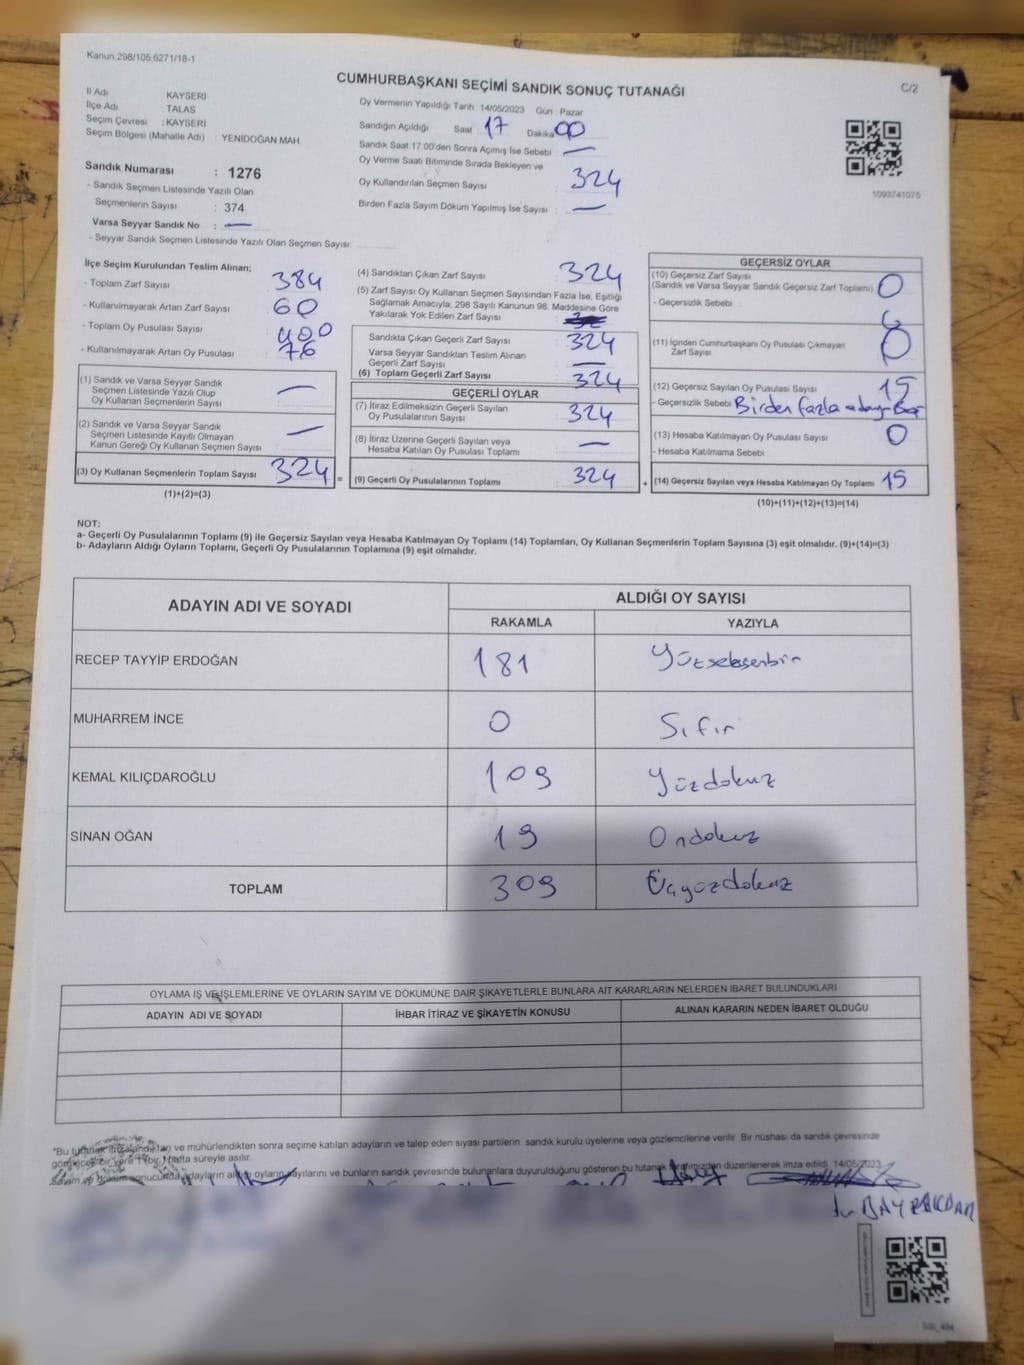 Kanun,298/105,6271/18-1
CUMHURBAŞKANI SEÇİMİ SANDIK SONUÇ TUTANAĞI
C/2
İl Adı : KAYSERİ
İlçe Adı : TALAS
Seçim Çevresi : KAYSERİ
Seçim Bölgesi (Mahalle Adı) : YENİDOĞAN MAH.
Sandık Numarası : 1276
- Sandık Seçmen Listesinde Yazılı Olan
Seçmenlerin Sayısı : 374
Varsa Seyyar Sandık No : —
- Seyyar Sandık Seçmen Listesinde Yazılı Olan Seçmen Sayısı:
Oy Vermenin Yapıldığı Tarih: 14/05/2023 Gün : Pazar
Sandığın Açıldığı Saat : 17 Dakika 00
Sandık Saat 17.00'den Sonra Açımış İse Sebebi : —
Oy Verme Saati Bitiminde Sırada Bekleyen ve
Oy Kullandırılan Seçmen Sayısı : 324
Birden Fazla Sayım Döküm Yapılmış İse Sayısı : —
1093741075
İlçe Seçim Kurulundan Teslim Alınan;
- Toplam Zarf Sayısı : 384
- Kullanılmayarak Artan Zarf Sayısı : 60
- Toplam Oy Pusulası Sayısı : 400
- Kullanılmayarak Artan Oy Pusulası : 76
(1) Sandık ve Varsa Seyyar Sandık
Seçmen Listesinde Yazılı Olup
Oy Kullanan Seçmenlerin Sayısı : —
(2) Sandık ve Varsa Seyyar Sandık
Seçmen Listesinde Kayıtlı Olmayan
Kanun Gereği Oy Kullanan Seçmen Sayısı : —
(3) Oy Kullanan Seçmenlerin Toplam Sayısı : 324 =
(1)+(2)=(3)
(4) Sandıktan Çıkan Zarf Sayısı : 324
(5) Zarf Sayısı Oy Kullanan Seçmen Sayısından Fazla İse, Eşitliği
Sağlamak Amacıyla, 298 Sayılı Kanunun 98. Maddesine Göre
Yakılarak Yok Edilen Zarf Sayısı :
Sandıkta Çıkan Geçerli Zarf Sayısı : 324
Varsa Seyyar Sandıktan Teslim Alınan
Geçerli Zarf Sayısı : —
(6) Toplam Geçerli Zarf Sayısı : 324
GEÇERLİ OYLAR
(7) İtiraz Edilmeksizin Geçerli Sayılan
Oy Pusulalarının Sayısı : 324
(8) İtiraz Üzerine Geçerli Sayılan veya
Hesaba Katılan Oy Pusulası Toplamı : —
(9) Geçerli Oy Pusulalarının Toplamı : 324 +
GEÇERSİZ OYLAR
(10) Geçersiz Zarf Sayısı : 0
(Sandık ve Varsa Seyyar Sandık Geçersiz Zarf Toplamı)
- Geçersizlik Sebebi :
(11) İçinden Cumhurbaşkanı Oy Pusulası Çıkmayan
Zarf Sayısı : 0
(12) Geçersiz Sayılan Oy Pusulası Sayısı : 15
- Geçersizlik Sebebi : Birden fazla
(13) Hesaba Katılmayan Oy Pusulası Sayısı : 0
- Hesaba Katılmama Sebebi
(14) Geçersiz Sayılan veya Hesaba Katılmayan Oy Toplamı : 15
(10)+(11)+(12)+(13)=(14)
NOT:
a- Geçerli Oy Pusulalarının Toplamı (9) ile Geçersiz Sayılan veya Hesaba Katılmayan Oy Toplamı (14) Toplamları, Oy Kullanan Seçmenlerin Toplam Sayısına (3) eşit olmalıdır. (9)+(14)=(3)
b- Adayların Aldığı Oyların Toplamı, Geçerli Oy Pusulalarının Toplamına (9) eşit olmalıdır.
ADAYIN ADI VE SOYADI ALDIĞI OY SAYISI
RAKAMLA YAZIYLA
RECEP TAYYİP ERDOĞAN 181 Yüzseksenbir
MUHARREM İNCE 0 Sıfır
KEMAL KILIÇDAROĞLU 109 Yüzdokuz
SİNAN OĞAN 19 Ondokuz
TOPLAM 309 Üçyüzdokuz
OYLAMA İŞ VE İŞLEMLERİNE VE OYLARIN SAYIM VE DÖKÜMÜNE DAİR ŞİKAYETLERLE BUNLARA AİT KARARLARIN NELERDEN İBARET BULUNDUKLARI
ADAYIN ADI VE SOYADI İHBAR İTİRAZ VE ŞİKAYETİN KONUSU ALINAN KARARIN NEDEN İBARET OLDUĞU
*Bu tutanak imzalandıktan ve mühürlendikten sonra seçime katılan adayların ve talep eden siyasi partilerin sandık kurulu üyelerine veya gözlemcilerine verilir. Bir nüshası da sandık çevresinde
görülecek bir yere 1 (bir) hafta süreyle asılır.
Sayım ve döküm sonucunda adayların aldığı oyların sayılarını ve bunların sandık çevresinde bulunanlara duyurulduğunu gösteren bu tutanak tarafımızdan düzenlenerek imza edildi. 14/05/2023
BAYRAKDAR